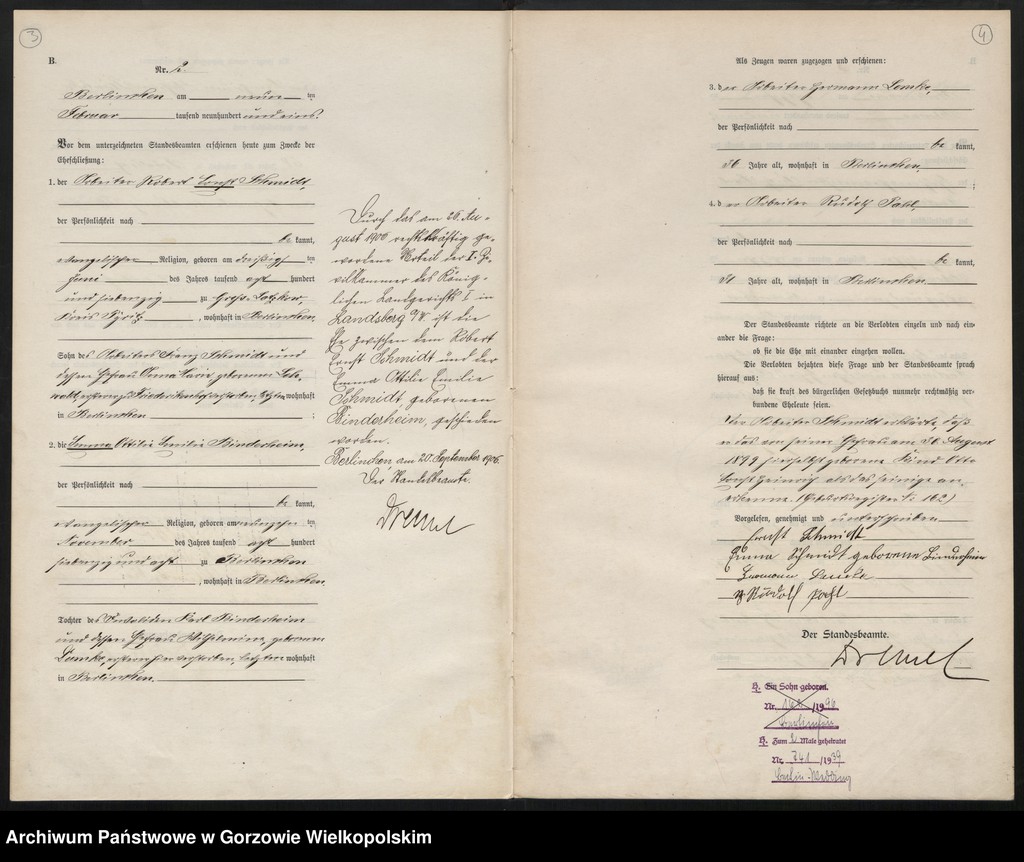 3
B.
Nr. 2.
Berlinchen am neun ten
Februar tausend neunhundert und eins.
Vor dem unterzeichneten Standesbeamten erschienen heute zum Zwecke der
Eheschließung:
1. der Arbeiter Robert Ernst Schmidt,
der Persönlichkeit nach
be kannt,
evangelischer Religion, geboren am dreißigsten
Juni des Jahres tausend acht hundert
und siebenzig zu Groß-Latzkow,
Kreis Pyritz, wohnhaft in Berlinchen.
Sohn des Arbeiters Schmidt und
dessen Ehefrau Anna Marie, geborenen
wohnhaft
in Berlinchen ;
2. die Emma Ottilie Emilie Binderheim,
der Persönlichkeit nach
be kannt,
evangelischer Religion, geboren am neunzehn ten
November des Jahres tausend acht hundert
siebenzig und acht zu Berlinchen
, wohnhaft in Berlinchen.
Tochter des Invaliden Karl Binderheim
und dessen Ehefrau Wilhelmine, geborenen
Lemke, ersterer hier verstorben, letztere wohnhaft
in Berlinchen.
Durch das am 26. Au-
gust 1906 rechtkräftig ge-
wordene Urteil der I. Zi-
vilkammer des König-
lichen Landgerichts I in
Landsberg a/W. ist die
Ehe zwischen dem Robert
Ernst Schmidt und der
Emma Ottilie Emilie
Schmidt geborenen
Binderheim, geschieden
worden.
Berlinchen am 20. September 1906.
Der Standesbeamte.
4
Als Zeugen waren zugezogen und erschienen:
3. der Arbeiter Hermann Lemke,
der Persönlichkeit nach
be kannt,
36 Jahre alt, wohnhaft in Berlinchen
;
4. der Arbeiter Rudolf Pahl,
der Persönlichkeit nach
be kannt,
31 Jahre alt, wohnhaft in Berlinchen.
Der Standesbeamte richtete an die Verlobten einzeln und nach ein-
ander die Frage:
ob sie die Ehe mit einander eingehen wollen.
Die Verlobten bejahten diese Frage und der Standesbeamte sprach
hierauf aus:
daß sie kraft des bürgerlichen Gesetzbuchs nunmehr rechtmäßig ver-
bundene Eheleute seien.
Der Arbeiter Schmidt erklärte, daß
er das von seiner Ehefrau am 30. August
1899 hierselbst geborene Kind Otto
Ernst Heinrich als das seinige an-
erkenne. (Geburtsregister N: 162)
Vorgelesen, genehmigt und unterschrieben
Ernst Schmidt
Emma Schmidt geborene Binderheim
Hermann Lemke
Rudolf Pahl
Der Standesbeamte.
H. Ein Sohn geboren.
Nr. /19
H. Zum 2 Male geheiratet
Nr. 741 /1939
Berlin-Wedding
Archiwum Państwowe w Gorzowie Wielkopolskim